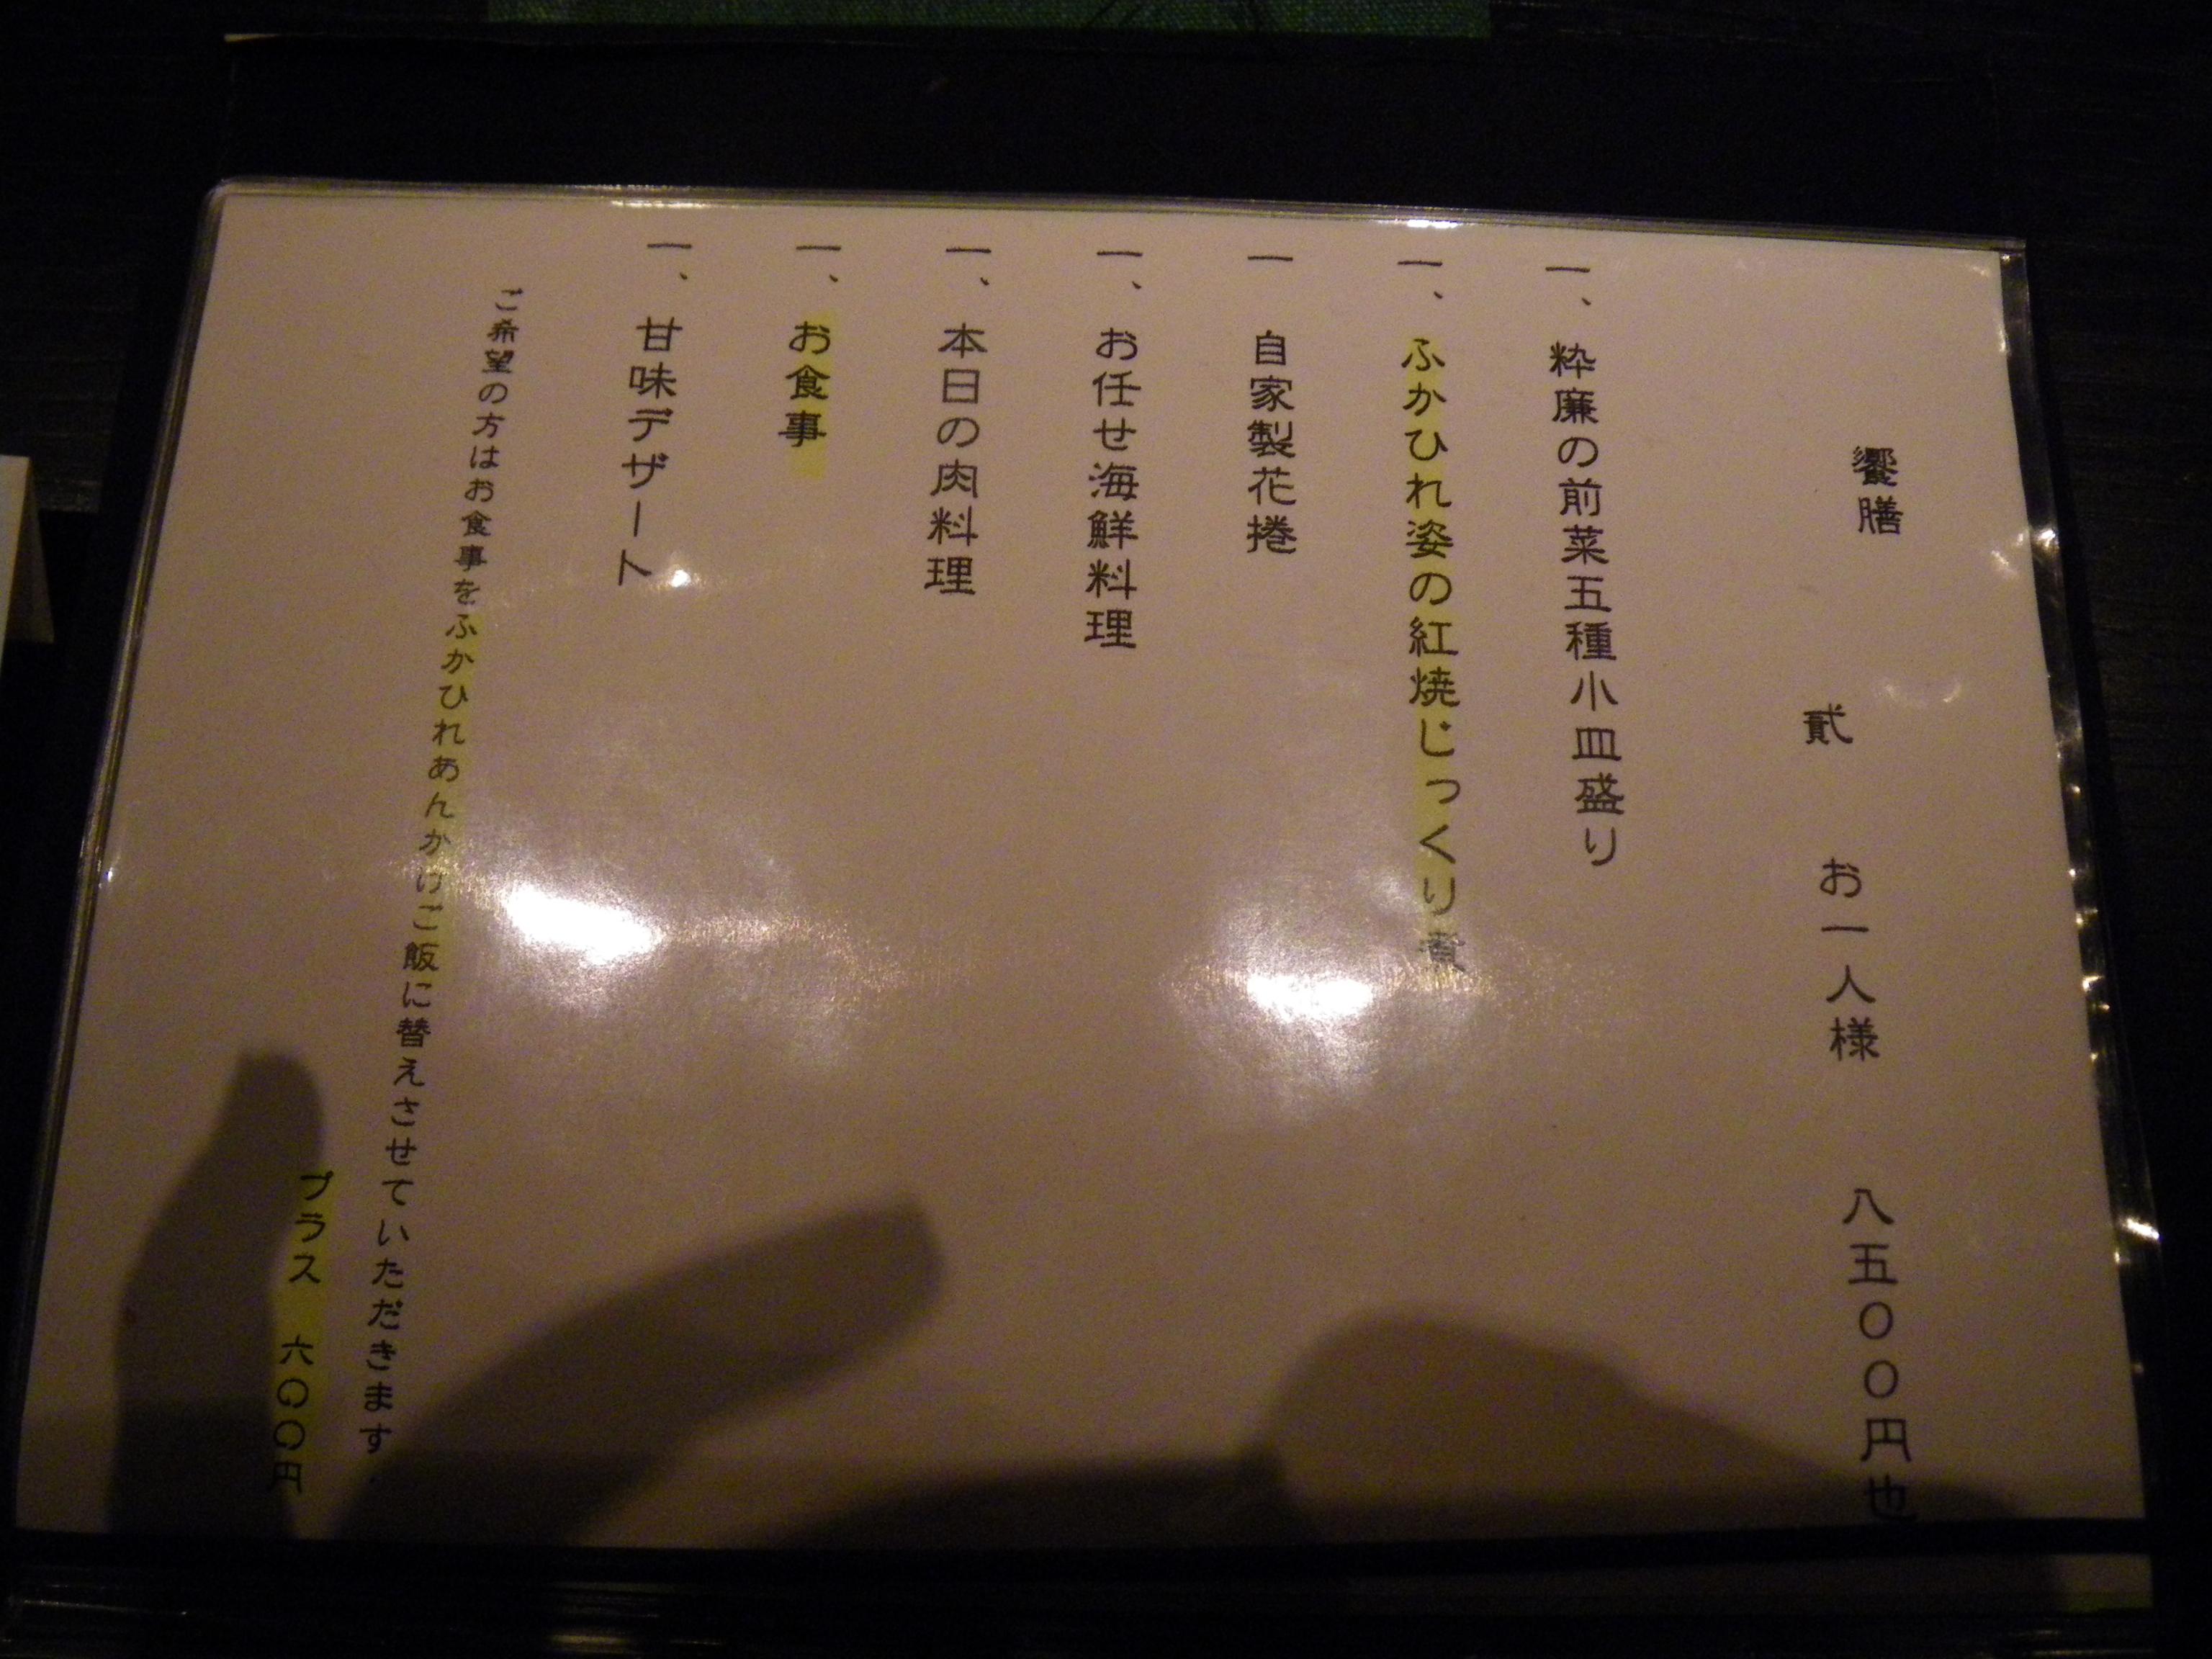 饗膳
貮　お一人様　八五〇〇円也
一、粋廉の前菜五種小皿盛り
一、ふかひれ姿の紅焼じっくり煮
一　自家製花捲
一、お任せ海鮮料理
一、本日の肉料理
一、お食事
一、甘味デザート
ご希望の方はお食事をふかひれあんかけご飯に替えさせていただきます.
プラス　六〇〇円